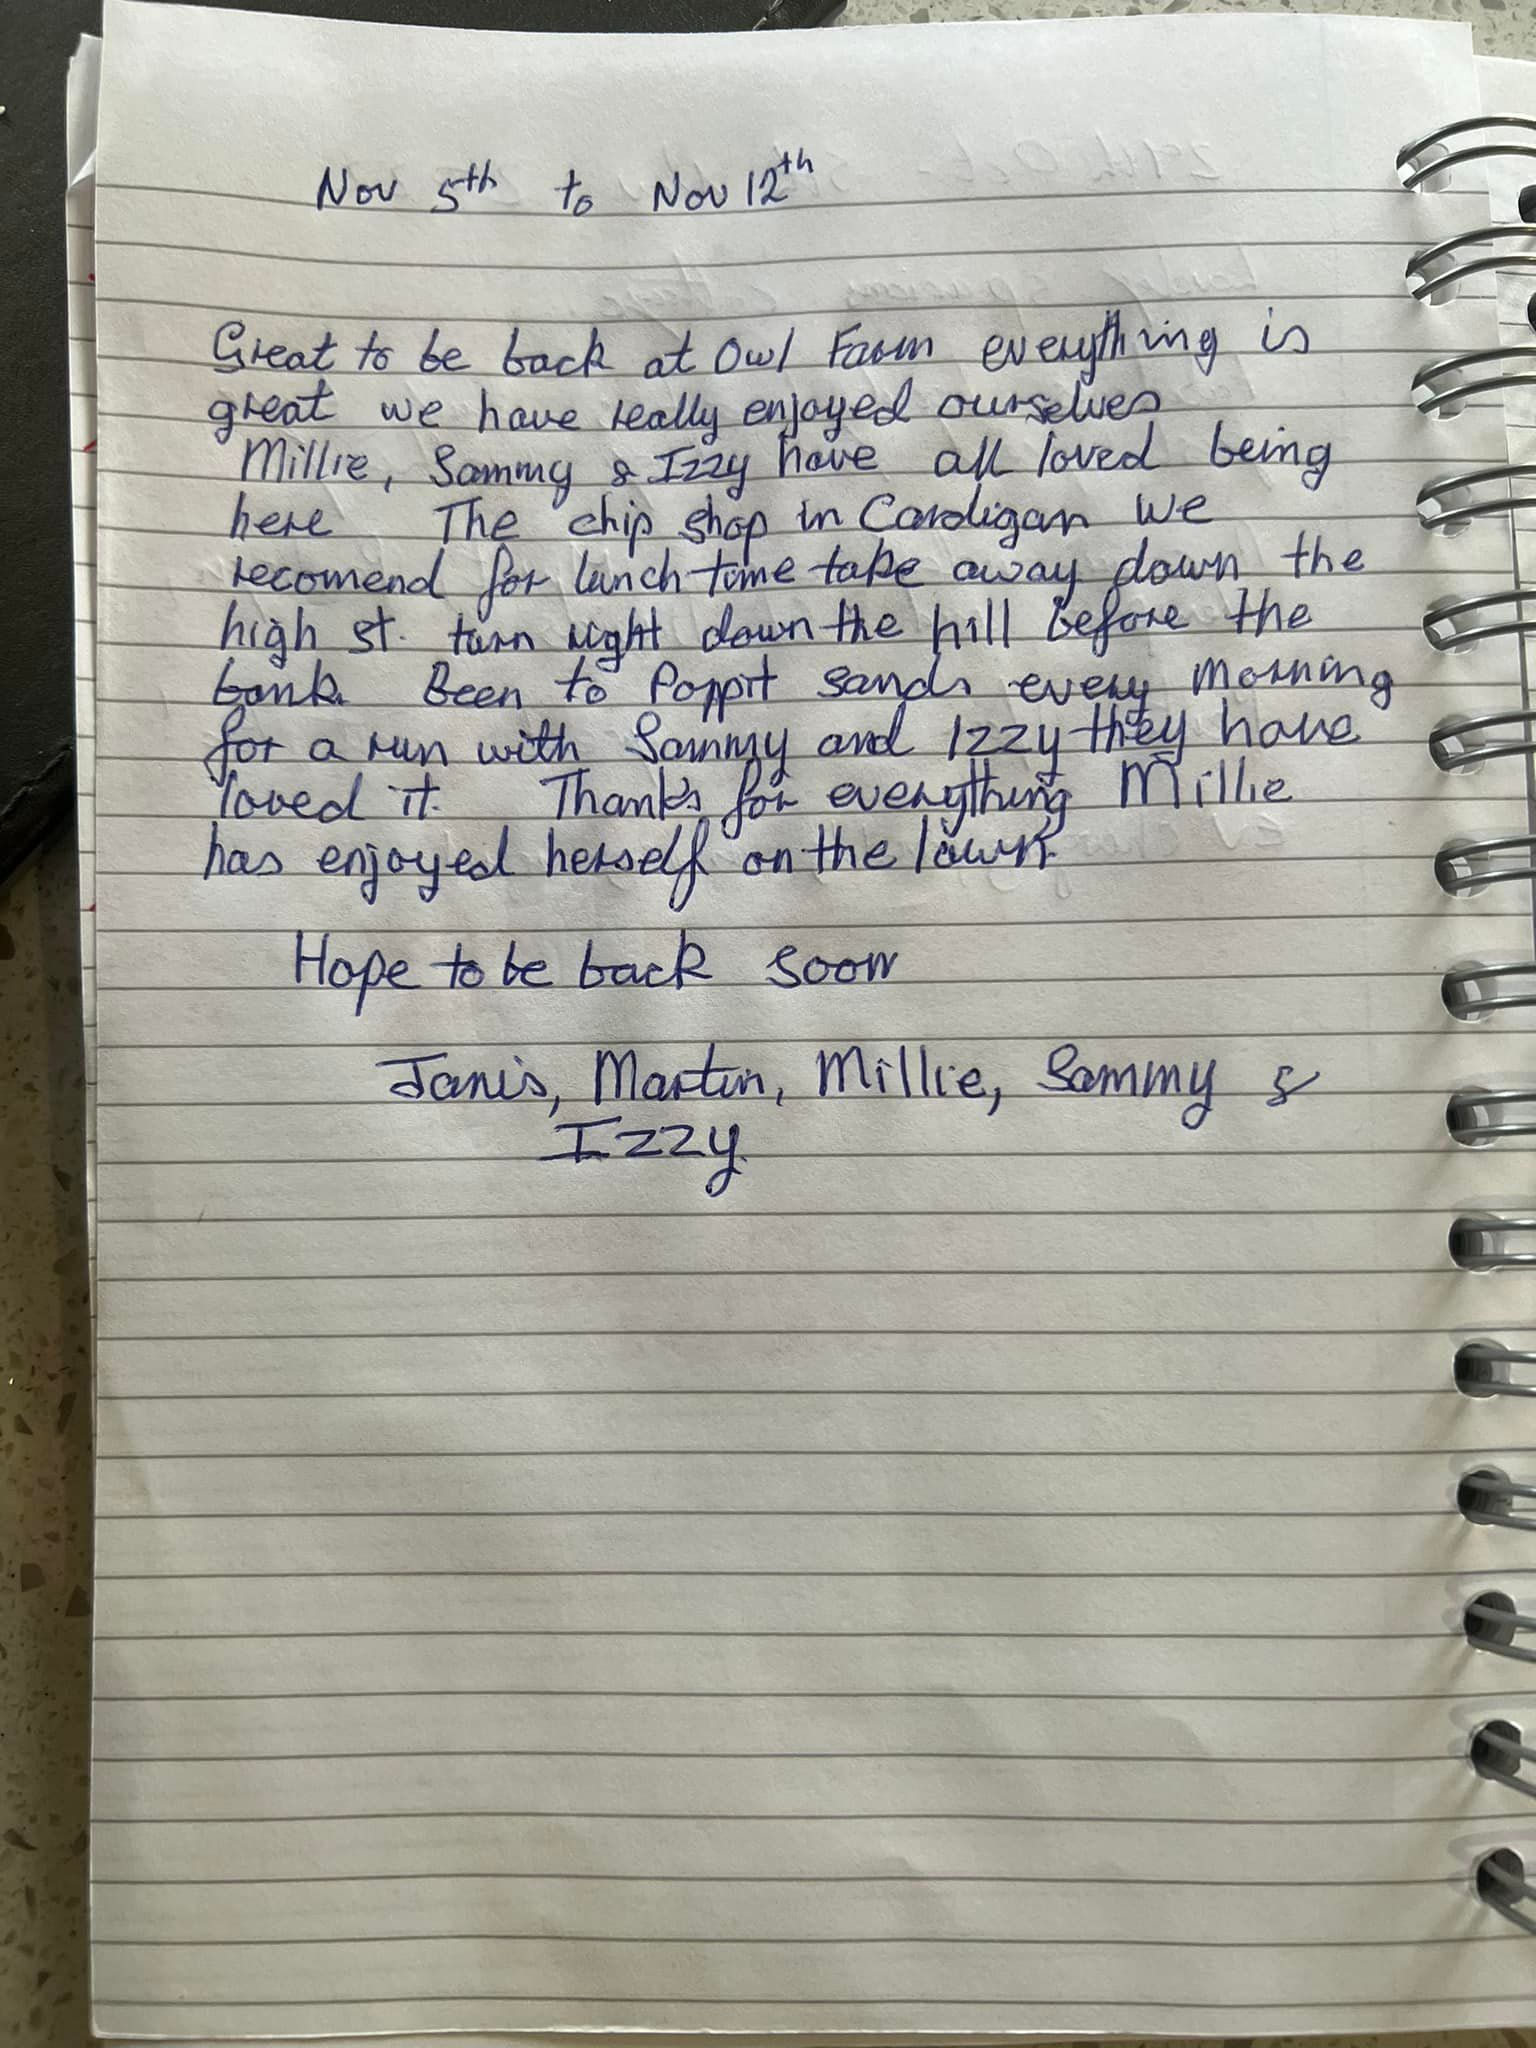 Nov 5th to Nov 12th
Great to be back at Owl Farm everything is
great we have really enjoyed ourselves
Millie, Sammy & Izzy have all loved being
here The chip shop in Cardigan we
recomend for lunch time take away down the
high st. turn right down the hill before the
bank. Been to Poppit sands every morning
for a run with Sammy and Izzy they have
loved it. Thanks for everything Millie
has enjoyed herself on the lawn.
Hope to be back soon
Janis, Martin, Millie, Sammy &
Izzy.